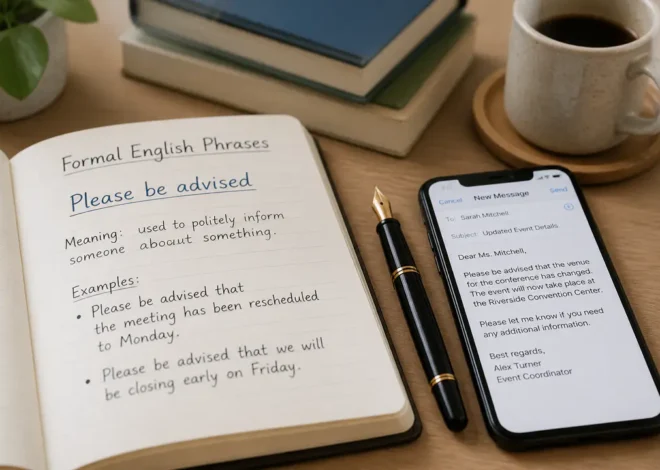 Formal English Phrases
Please be advised
Meaning: used to politely inform
someone aboout something.
Examples:
• Please be advised that
the meeting has been rescheduled
to Monday.
• Please be advised that we will
be closing early on Friday.
Cancel New Message Send
To: Sarah Mitchell
Subject: Updated Event Details
Dear Ms. Mitchell,
Please be advised that the venue
for the conference has changed.
The event will now take place at
the Riverside Convention Center.
Please let me know if you need
any additional information.
Best regards,
Alex Turner
Event Coordinator